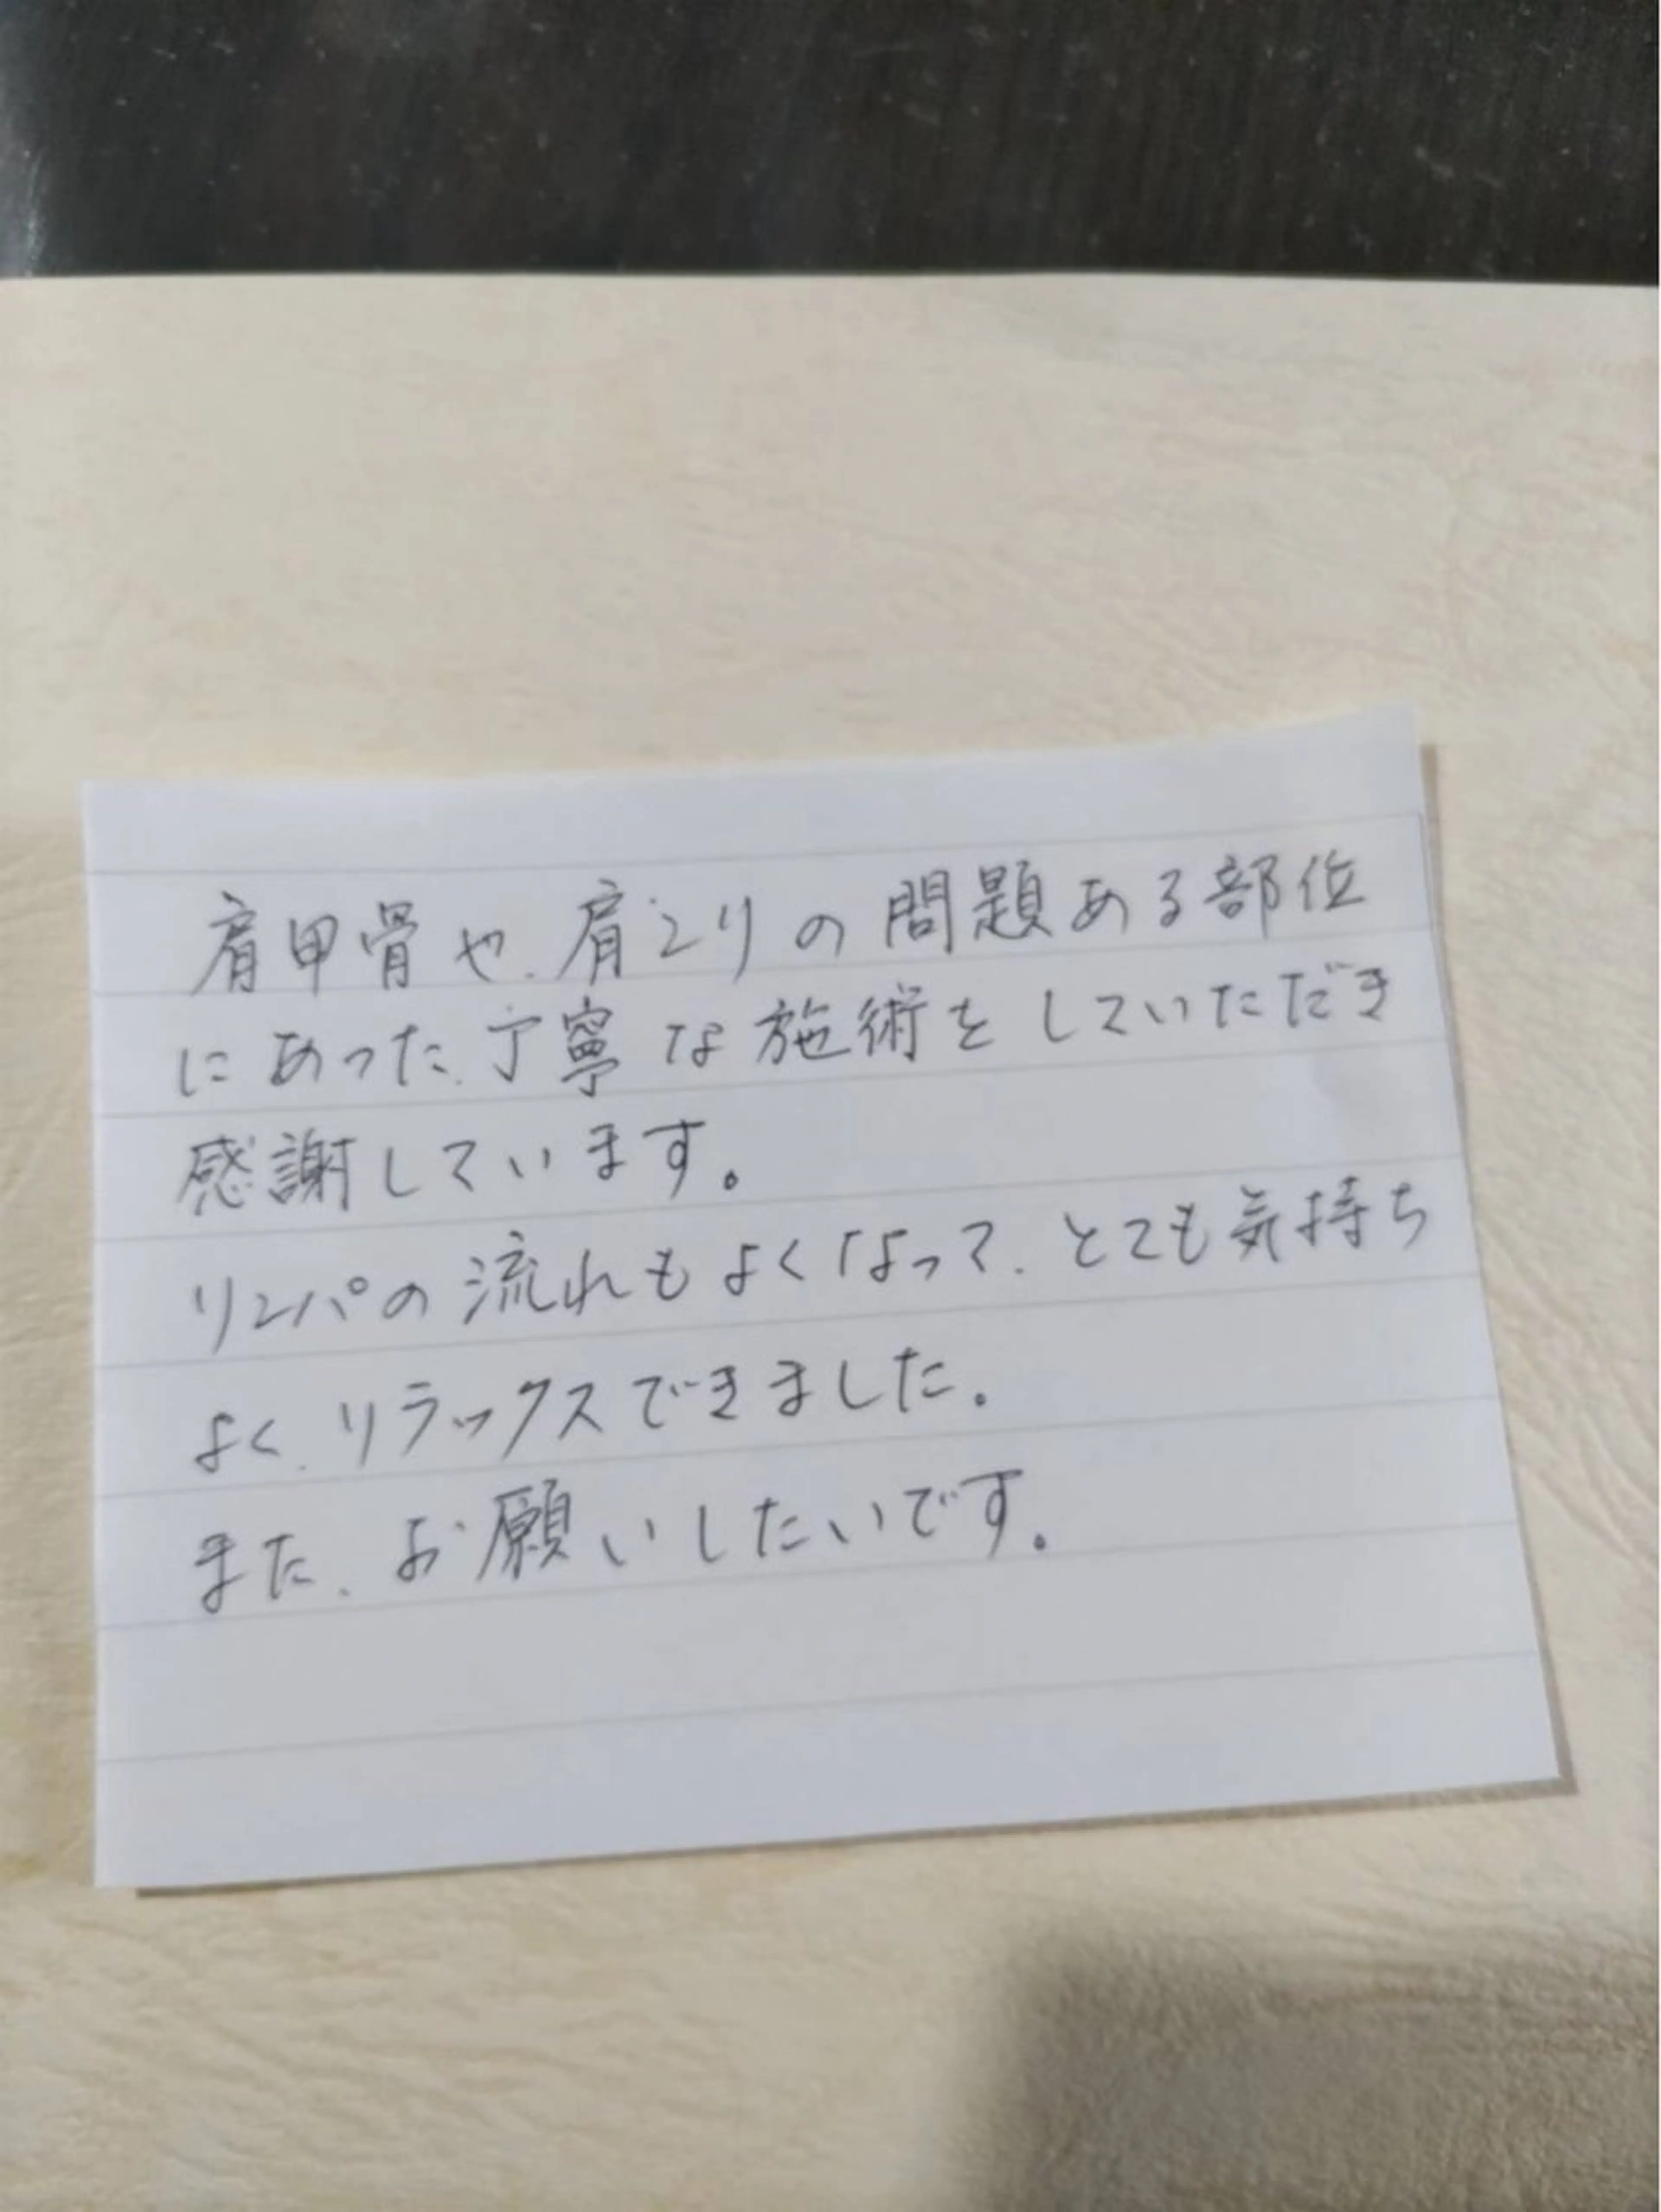 肩甲骨や、肩こりの問題ある部位
にあった、丁寧な施術をしていただき
感謝しています。
リンパの流れもよくなって、とても気持ち
よく、リラックスできました。
また、お願いしたいです。